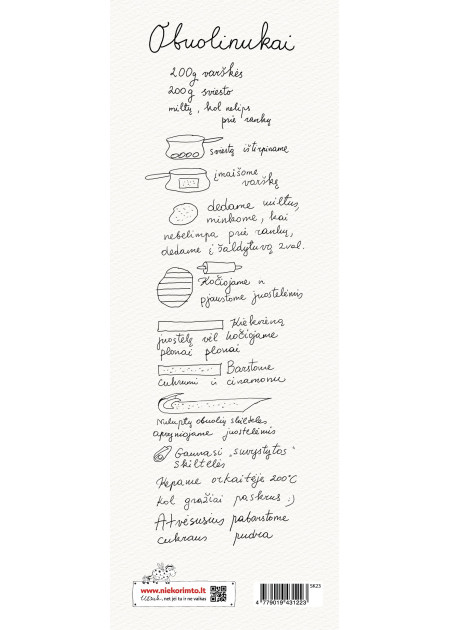 Obuolinukai
200g varškės
200g sviesto
miltų, kol nelips
prie rankų
sviestą ištirpiname
įmaišome
varškę
dedame miltus,
minkome, kai
nebelimpa prie rankų,
dedame į šaldytuvą 2val.
Kočiojame ir
pjaustome juostelėmis
Kiekvieną
juostelę vėl kočiojame
plonai plonai
Barstome
cukrumi ir cinamonu
Nuluptų obuolių skilteles
apvyniojame juostelėmis
Gaunasi „suvystytos"
skiltelės
Kepame orkaitėje 200°C
kol gražiai paskrus :)
Atvėsusius pabarstome
cukraus pudra
www.niekorimto.lt
net jei tu ir ne vaikas
SK23
4 779019 431223